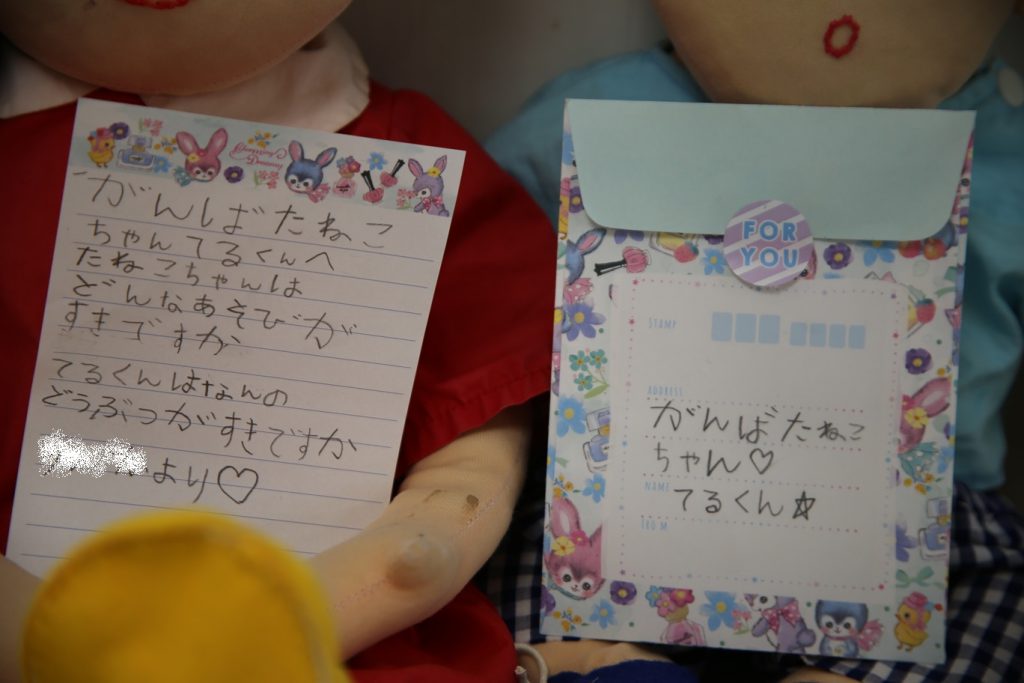 がんばたねこ
ちゃんてるくんへ
たねこちゃんは
どんなあそびが
すきですか
てるくんはなんの
どうぶつがすきですか
より♡
FOR
YOU
STAMP
ADDRESS
がんばたねこ
ちゃん♡
NAME
てるくん☆
FROM